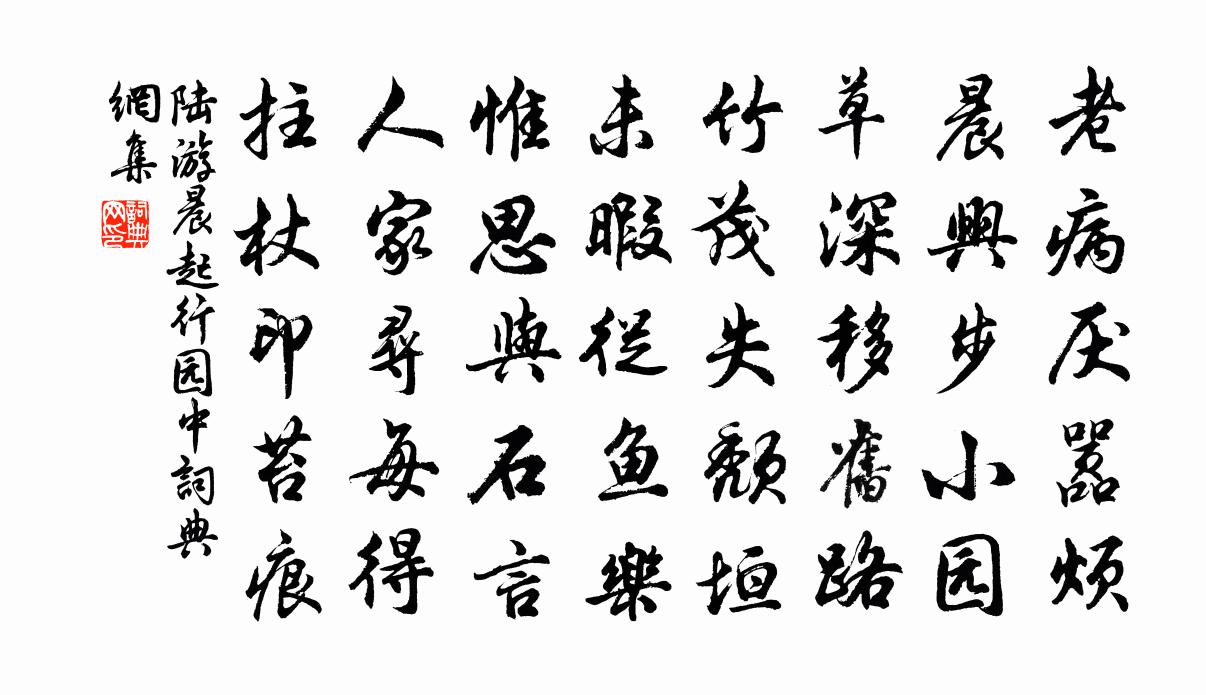 老病厌嚣烦
晨興步小园
草深移舊路
竹茂失頹垣
未暇從鱼樂
惟思與石言
人家尋每得
拄杖印苔痕
陆游晨起行园中詞典
網集
詞典網印